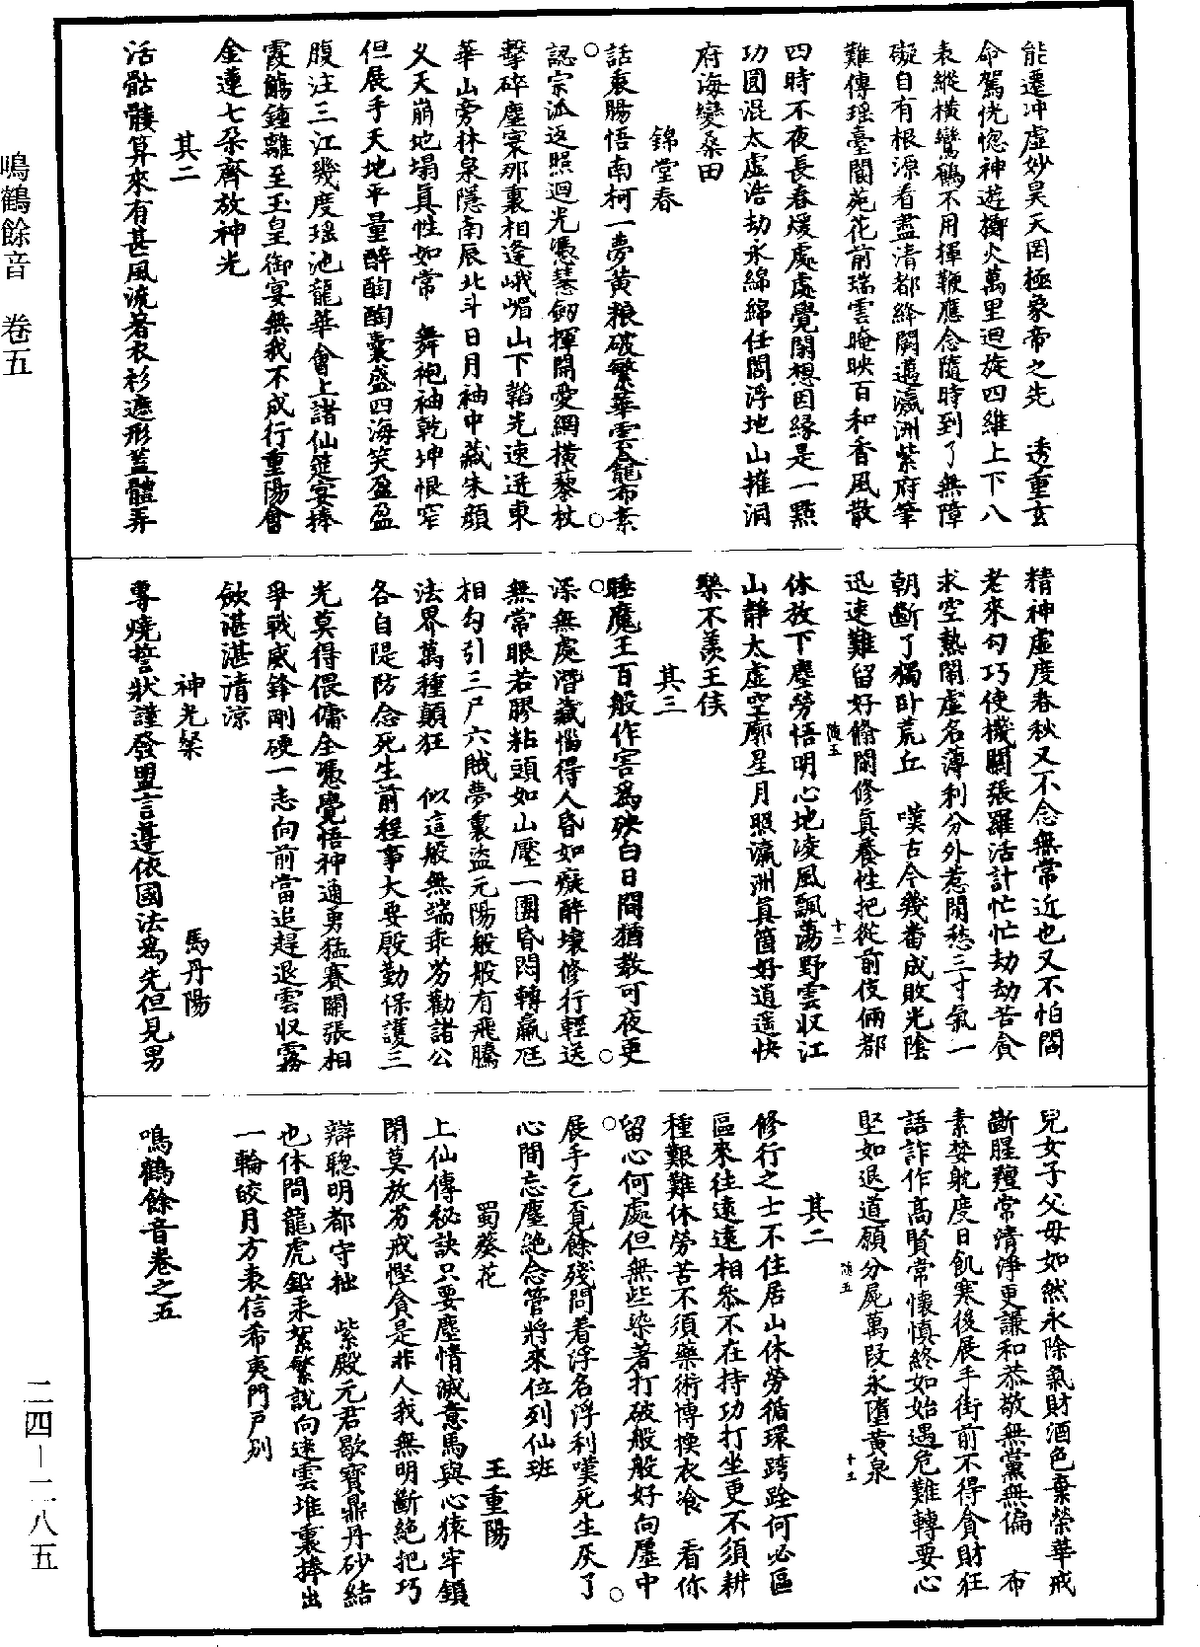 能遷冲虛妙昊天罔極象帝之先　透重玄
命駕恍惚神遊擲火萬里迴旋四維上下八
表縱横鸞鶴不用揮鞭應念隨時到了無障
礙自有根源看盡清都絳闕邁瀛洲紫府筆
難傳瑶臺閬苑花前瑞雲晻映百和香風散
四時不夜長春煖處處覺閑想因緣是一點
功圓混太虛浩劫永綿綿任閻浮地山摧洞
府海變桑田
錦堂春
話裏腸悟南柯一夢黄粮破繁華雲龕布素
認宗派返照迴光憑慧劒揮開愛網横藜杖
擊碎塵寰那裏相逢峨嵋山下韜光速迸東
華山旁林泉隱南辰北斗日月袖中藏朱顔
义天崩地塌真性如常　舞袍袖乾坤恨窄
但展手天地平量醉酶酶囊盛四海笑盈盈
腹注三江幾度瑶池龍華會上諸仙筵宴捧
霞觴鍾離至玉皇御宴無我不成行重陽會
金蓮七朵齊放神光
其二
活骷髏算來有甚風流著衣衫遮形蓋體弄
精神虛度春秋又不念無常近也又不怕閻
老來勾巧使機關張羅活計忙忙劫劫苦貪
求空熱鬧虛名薄利分外惹閑愁三寸氣一
朝斷了獨卧荒丘　嘆古今幾番成敗光陰
迅速難留好脩閑修真養性把從前伎倆都
隨五
十二
休放下塵勞悟明心地淩風飄蕩野雲收江
山靜太虛空廓星月照瀛洲真箇好逍遥快
樂不羨王侯
其三
睡魔王百般作害爲殃白日間猶教可夜更
深無處潜藏惱得人昏如癡醉壞修行輕送
無常眼若膠粘頭如山壓一團昏悶轉羸尫
相勾引三尸六賊夢裏盜元陽般般有飛騰
法界萬種顛狂　似這般無端乖劣勸諸公
各自隄防念死生前程事大要殷勤保護三
光莫得偎慵全憑覺悟神通勇猛賽關張相
爭戰威鋒剛硬一志向前當追趕退雲収霧
歛湛湛清涼
神光粲
馬丹陽
專燒誓狀謹發盟言遵依國法爲先但見男
兒女子父母如然永除氣財酒色棄榮華戒
斷腥羶常清淨更謙和恭敬無黨無偏　布
素婪躭度日飢寒後展手街前不得貪財狂
語詐作高賢常懷慎終如始遇危難轉要心
堅如退道願分屍萬段永墮黄泉
隨五
十三
其二
修行之士不住居山休勞循環跨跧何必區
區來往遠遠相參不在持功打坐更不須耕
種艱難休勞苦不須藥術博換衣飡　看你
留心何處但無些染著打破般般好向塵中
展手乞覓餘殘問看浮名浮利嘆死生灰了
心間忘塵絶念管將來位列仙班
蜀葵花
王重陽
上仙傳秘訣只要塵情滅意馬與心猿牢鎖
閉莫放劣戒慳貪是非人我無明斷絶把巧
辯聰明都守拙　紫殿元君歇寶鼎丹砂結
也休問龍虎鉛汞絮繁說向迷雲堆裏捧出
一輪皎月方表信希夷門戶別
鳴鶴餘音卷之五
鳴鶴餘音　卷五
二四—二八五